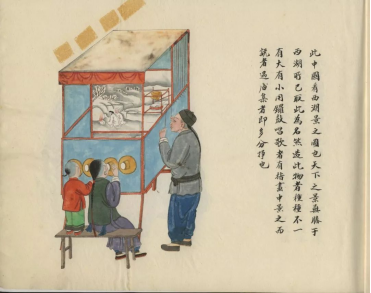 此中國看西湖景之圖也天下之景無勝于
西湖前已取此為名然造此物者種種不一
有大有小用鑼鼓唱歌者有指畫中景之而
説者遇廟集者即多分掙也